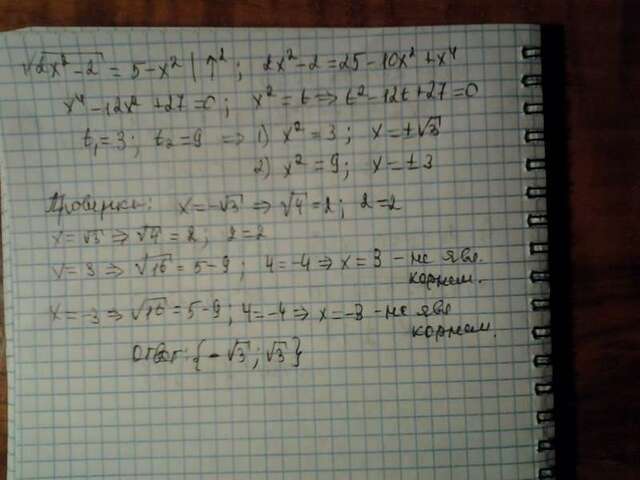 √2x²-2 = 5-x² | ↑²; 2x²-2=25-10x²+x⁴
x⁴-12x²+27=0; x²=t ⇒ t²-12t+27=0
t₁=3; t₂=9 ⇒ 1) x²=3; x=±√3
2) x²=9; x=±3
Проверка: x=-√3 ⇒ √4=2; 2=2
x=√3 ⇒ √4=2; 2=2
x=3 ⇒ √16=5-9; 4=-4 ⇒ x=3 - не явл.
корнем.
x=-3 ⇒ √16=5-9; 4=-4 ⇒ x=-3 - не явл
корнем.
Ответ: {-√3; √3}